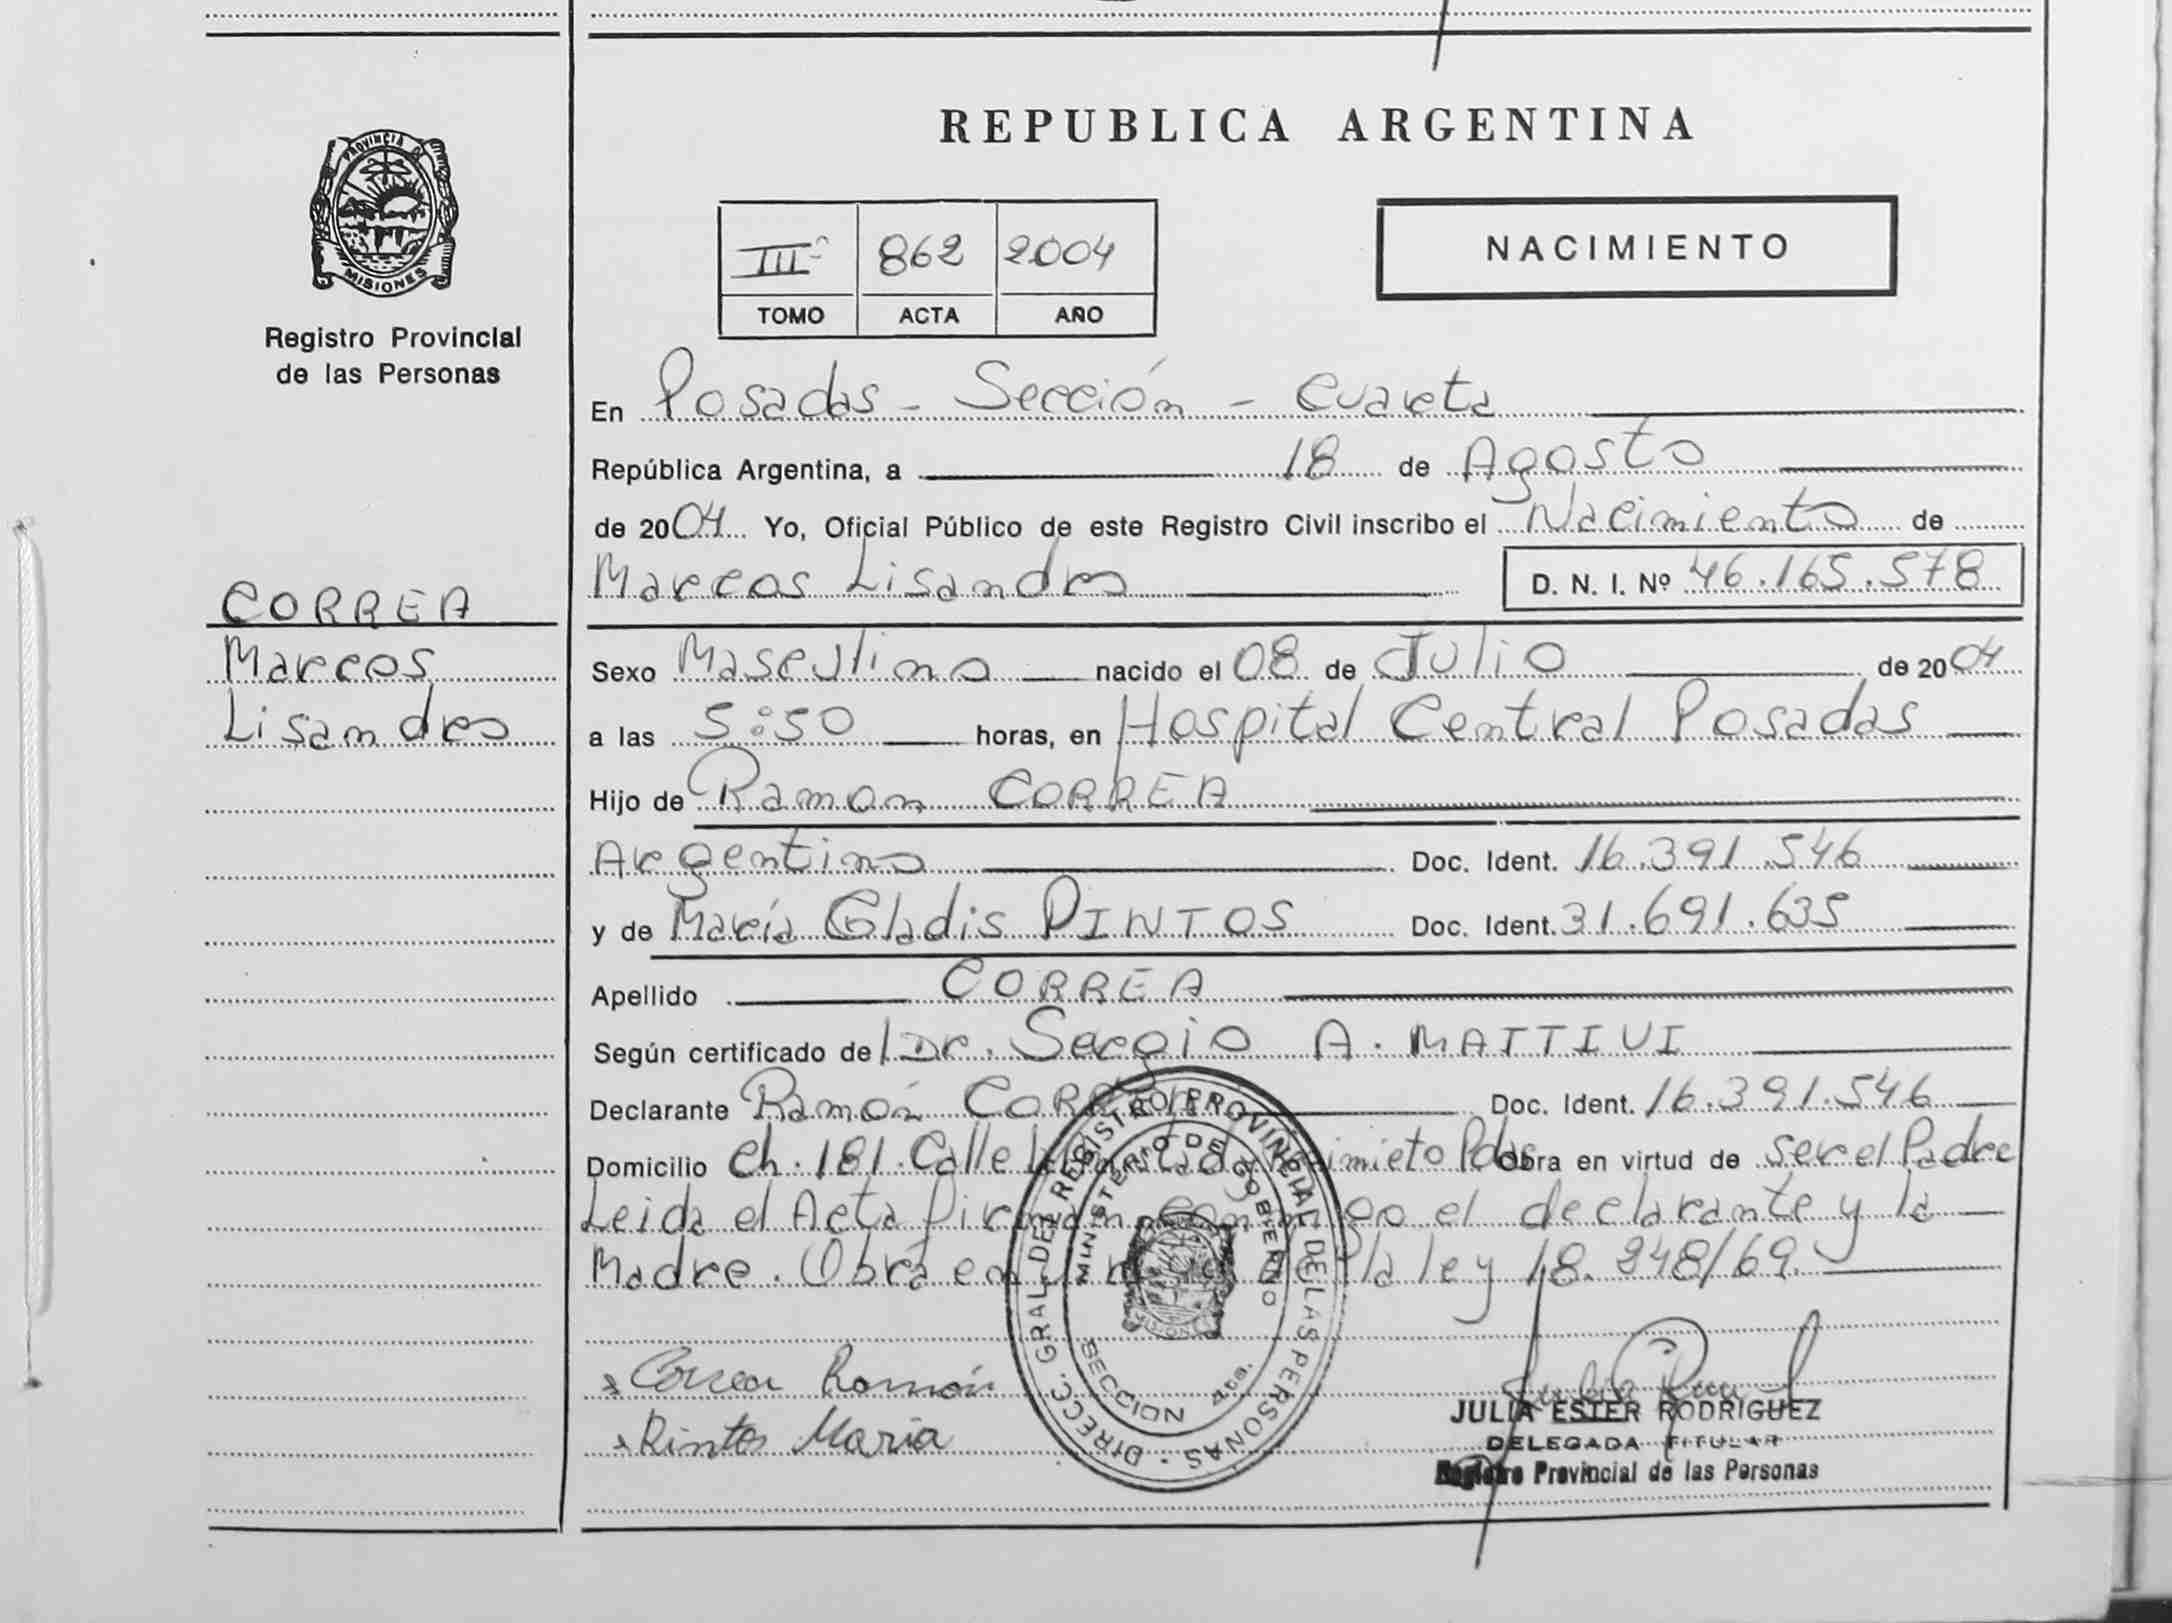 REPUBLICA ARGENTINA
PROVINCIA DE
MISIONES
Registro Provincial
de las Personas
IIIº 862 2004
TOMO ACTA AÑO
NACIMIENTO
En Posadas - Sección - Cuarta
República Argentina, a 18 de Agosto
de 2004 Yo, Oficial Público de este Registro Civil inscribo el Nacimiento de
Marcos Lisandro D. N. I. Nº 46.165.578
CORREA
Marcos
Lisandro
Sexo Masculino nacido el 08 de Julio de 2004
a las 5:50 horas, en Hospital Central Posadas
Hijo de Ramon CORREA
Argentino Doc. Ident. 16.391.546
y de María Gladis PINTOS Doc. Ident. 31.691.635
Apellido CORREA
Según certificado de Dr. Sergio A. MATTIVI
Declarante Ramón CORREA Doc. Ident. 16.391.546
Domicilio Ch. 181. Calle Pdas Obra en virtud de ser el Padre
Leida el Acta Firman conmigo el declarante y la
Madre. Obra en la ley 18.248/69.
Correa Ramón
Pintos Maria
DIRECC. GRAL. DEL REGISTRO PROVINCIAL DE LAS PERSONAS
MINISTERIO DE GOBIERNO
SECCION 4ta.
JULIA ESTER RODRIGUEZ
DELEGADA TITULAR
Registro Provincial de las Personas